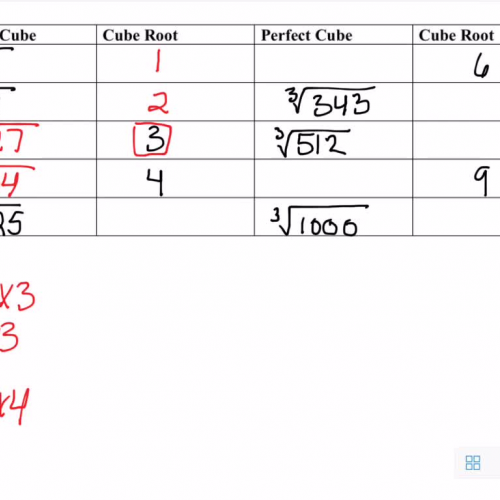 Cube Cube Root Perfect Cube Cube Root
1 6
2 ∛343
27 3 ∛512
4 4 9
25 ∛1000
x3
3
x4